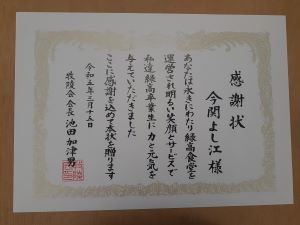 感謝状
今関よし江 様
あなたは永きにわたり緑高食堂を
運営され明るい笑顔とサービスで
私達緑高卒業生に力と元気を
与えていただきました
ここに感謝を込めて本状を贈ります
令和五年三月十五日
牧陵会 会長 池田 加津男